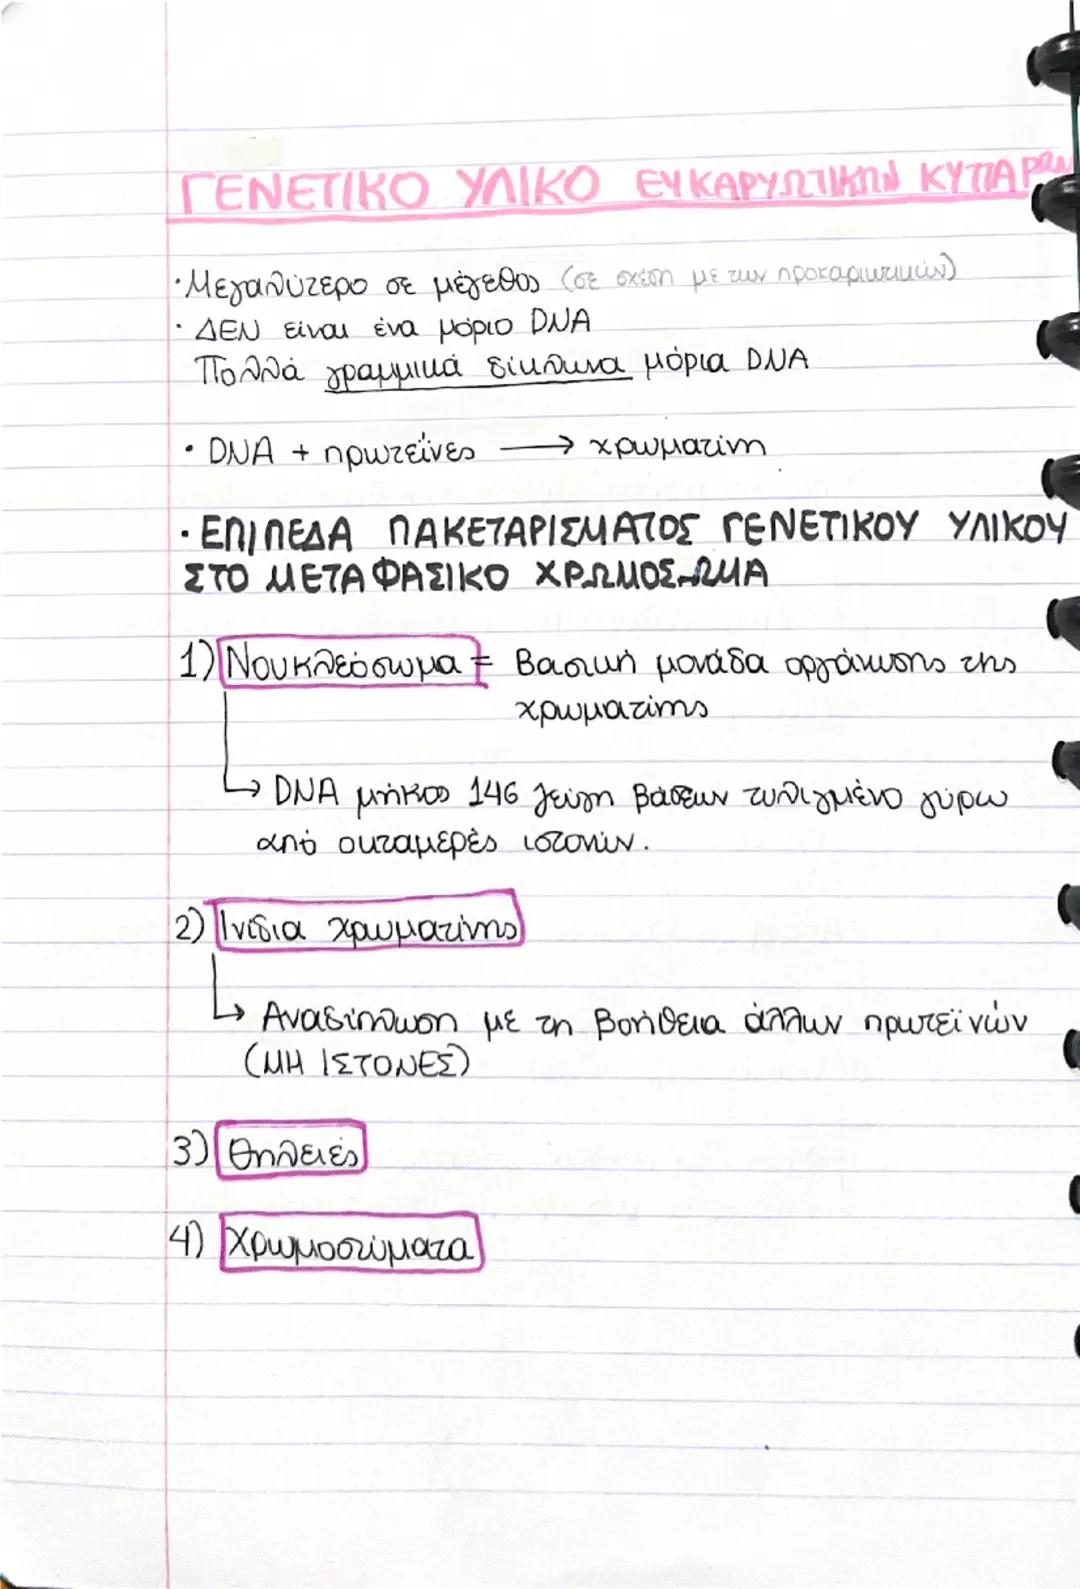 ΓΕΝΕΤΙΚΟ ΥΛΙΚΟ ΕΥΚΑΡΥΩΤΙΚΩΝ ΚΥΤΤΑΡΩΝ
·Μεγαλύτερο σε μέγεθος (σε σχέση με των προκαριωτικών)
· ΔΕΝ είναι ένα μόριο DNA
Πολλά γραμμικά δίκλωνα μόρια DNA
· DNA + πρωτεΐνες → χρωματίνη
· ΕΠΙΠΕΔΑ ΠΑΚΕΤΑΡΙΣΜΑΤΟΣ ΓΕΝΕΤΙΚΟΥ ΥΛΙΚΟΥ
ΣΤΟ ΜΕΤΑΦΑΣΙΚΟ ΧΡΩΜΟΣΩΜΑ
1) Νουκλεόσωμα = Βασική μονάδα οργάνωσης της
χρωματίνης
↳ DNA μήκος 146 ζεύγη βάσεων τυλιγμένο γύρω
από οκταμερές ιστονών.
2) Ινίδια χρωματίνης
↳ Αναδίπλωση με τη βοήθεια άλλων πρωτεϊνών
(ΜΗ ΙΣΤΟΝΕΣ)
3) Θηλειές
4) Χρωμοσώματα